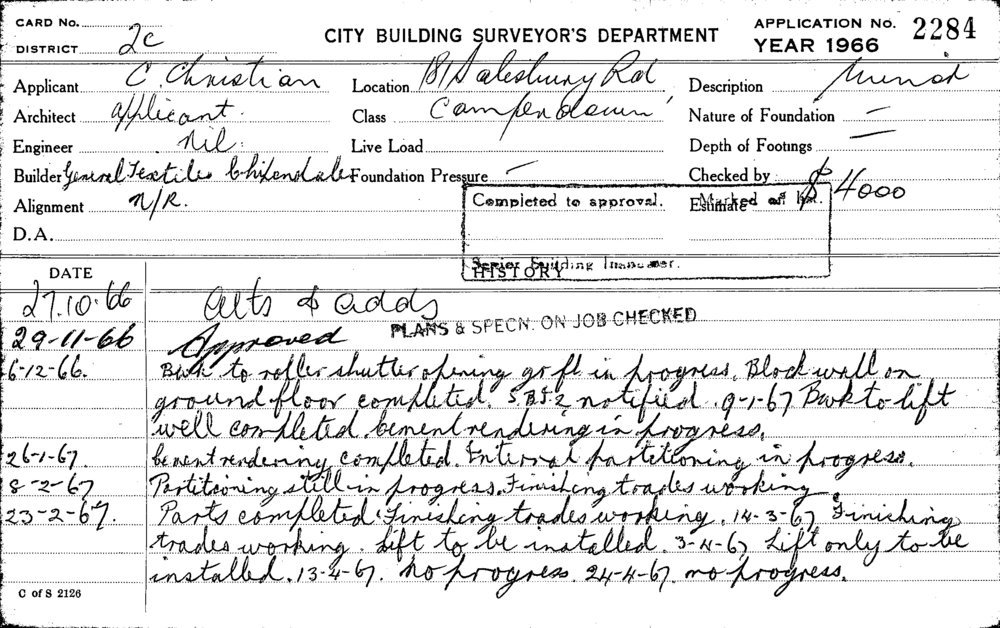 CARD No.
DISTRICT 2c
CITY BUILDING SURVEYOR'S DEPARTMENT
APPLICATION No. 2284
YEAR 1966
Applicant C. Christian Location 181 Salesbury Rd Description Minor
Architect applicant. Class Camperdown Nature of Foundation —
Engineer Nil. Live Load Depth of Footings —
Builder General Textiles Chippendale Foundation Pressure — Checked by
Alignment N/R. Estimate $4000
Completed to approval. Marked off
D.A.
Senior Building Inspector.
HISTORY
DATE
27.10.66 Alts & adds
29-11-66 Approved PLANS & SPECN. ON JOB CHECKED
6-12-66. Bwk to roller shutter opening gr fl in progress. Block wall on
ground floor completed. notified. 9-1-67 Bwk to lift
well completed. Cement rendering in progress.
26-1-67. Cement rendering completed. Internal partitioning in progress.
8-2-67 Partitioning still in progress. Finishing trades working.
23-2-67. Parts completed. Finishing trades working. 14-3-67 Finishing
trades working. Lift to be installed. 3-4-67 Lift only to be
installed. 13-4-67. No progress. 24-4-67. no progress.
C of S 2126